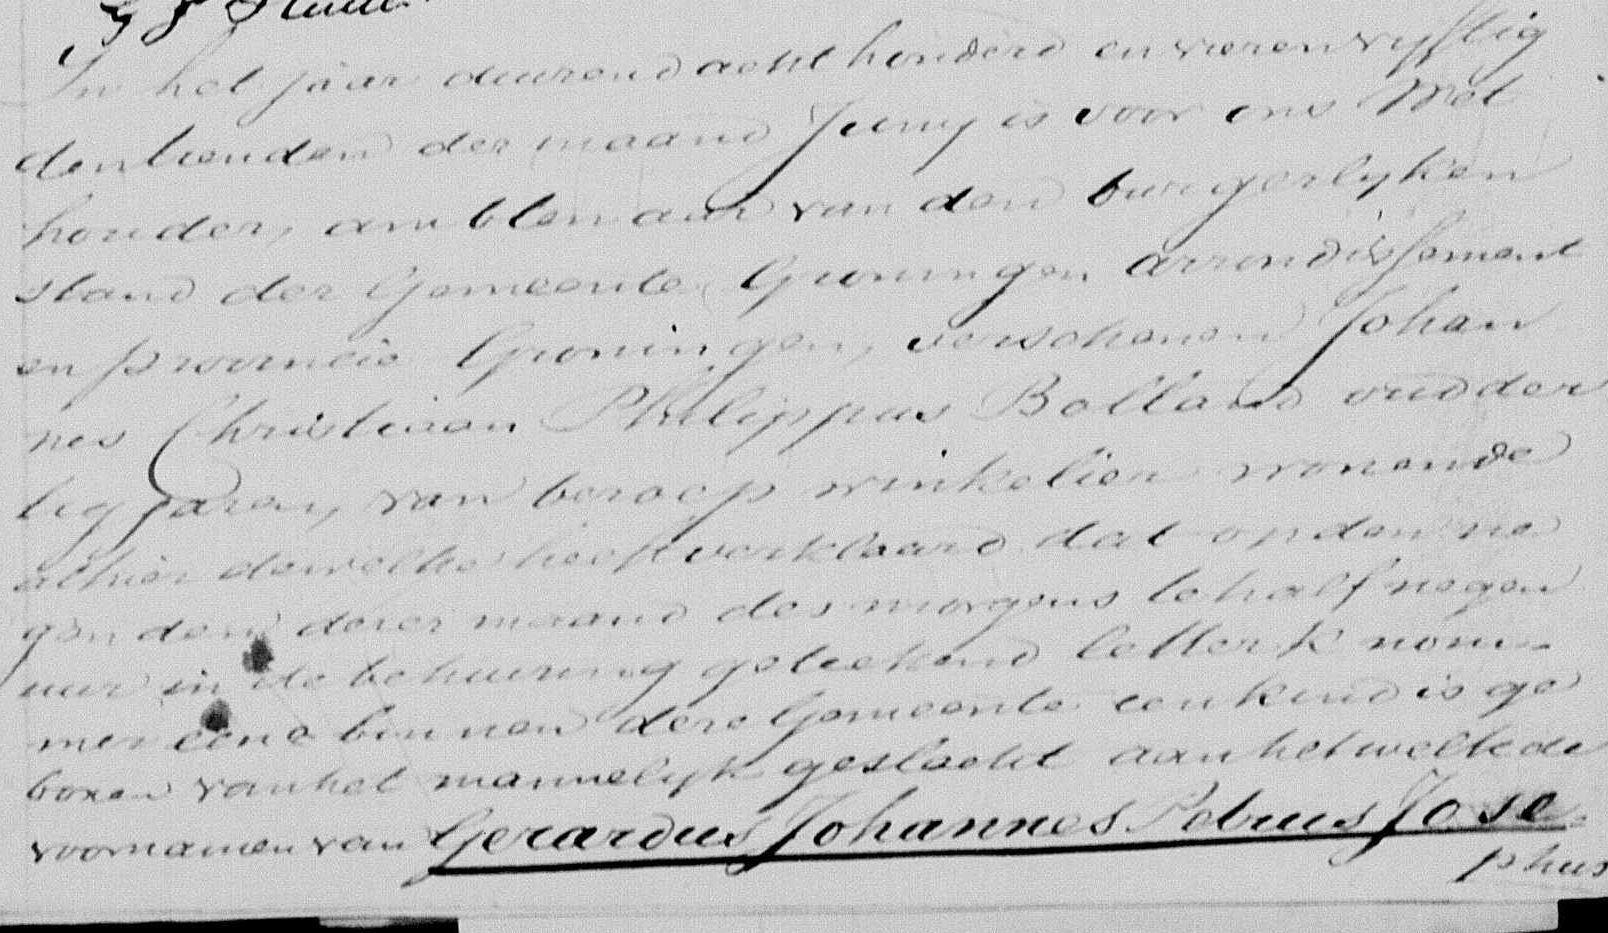 In het jaar duizend acht honderd en vierenvyftig
den tienden der maand Juny is voor ons Wet
houder, ambtenaar van den burgerlyken
stand der Gemeente Groningen arrondissement
en provincie Groningen, verschenen Johan
nes Christiaan Philippus Bolland oud der
tig jaren, van beroep winkelier wonende
alhier dewelke heeft verklaard dat op den ne
genden dezer maand des morgens te half negen
uur in de behuizing geteekend letter K nom-
mer eene binnen deze Gemeente een kind is ge
boren van het mannelyk geslacht aan hetwelk de
voornamen van Gerardus Johannes Petrus Jose
phus